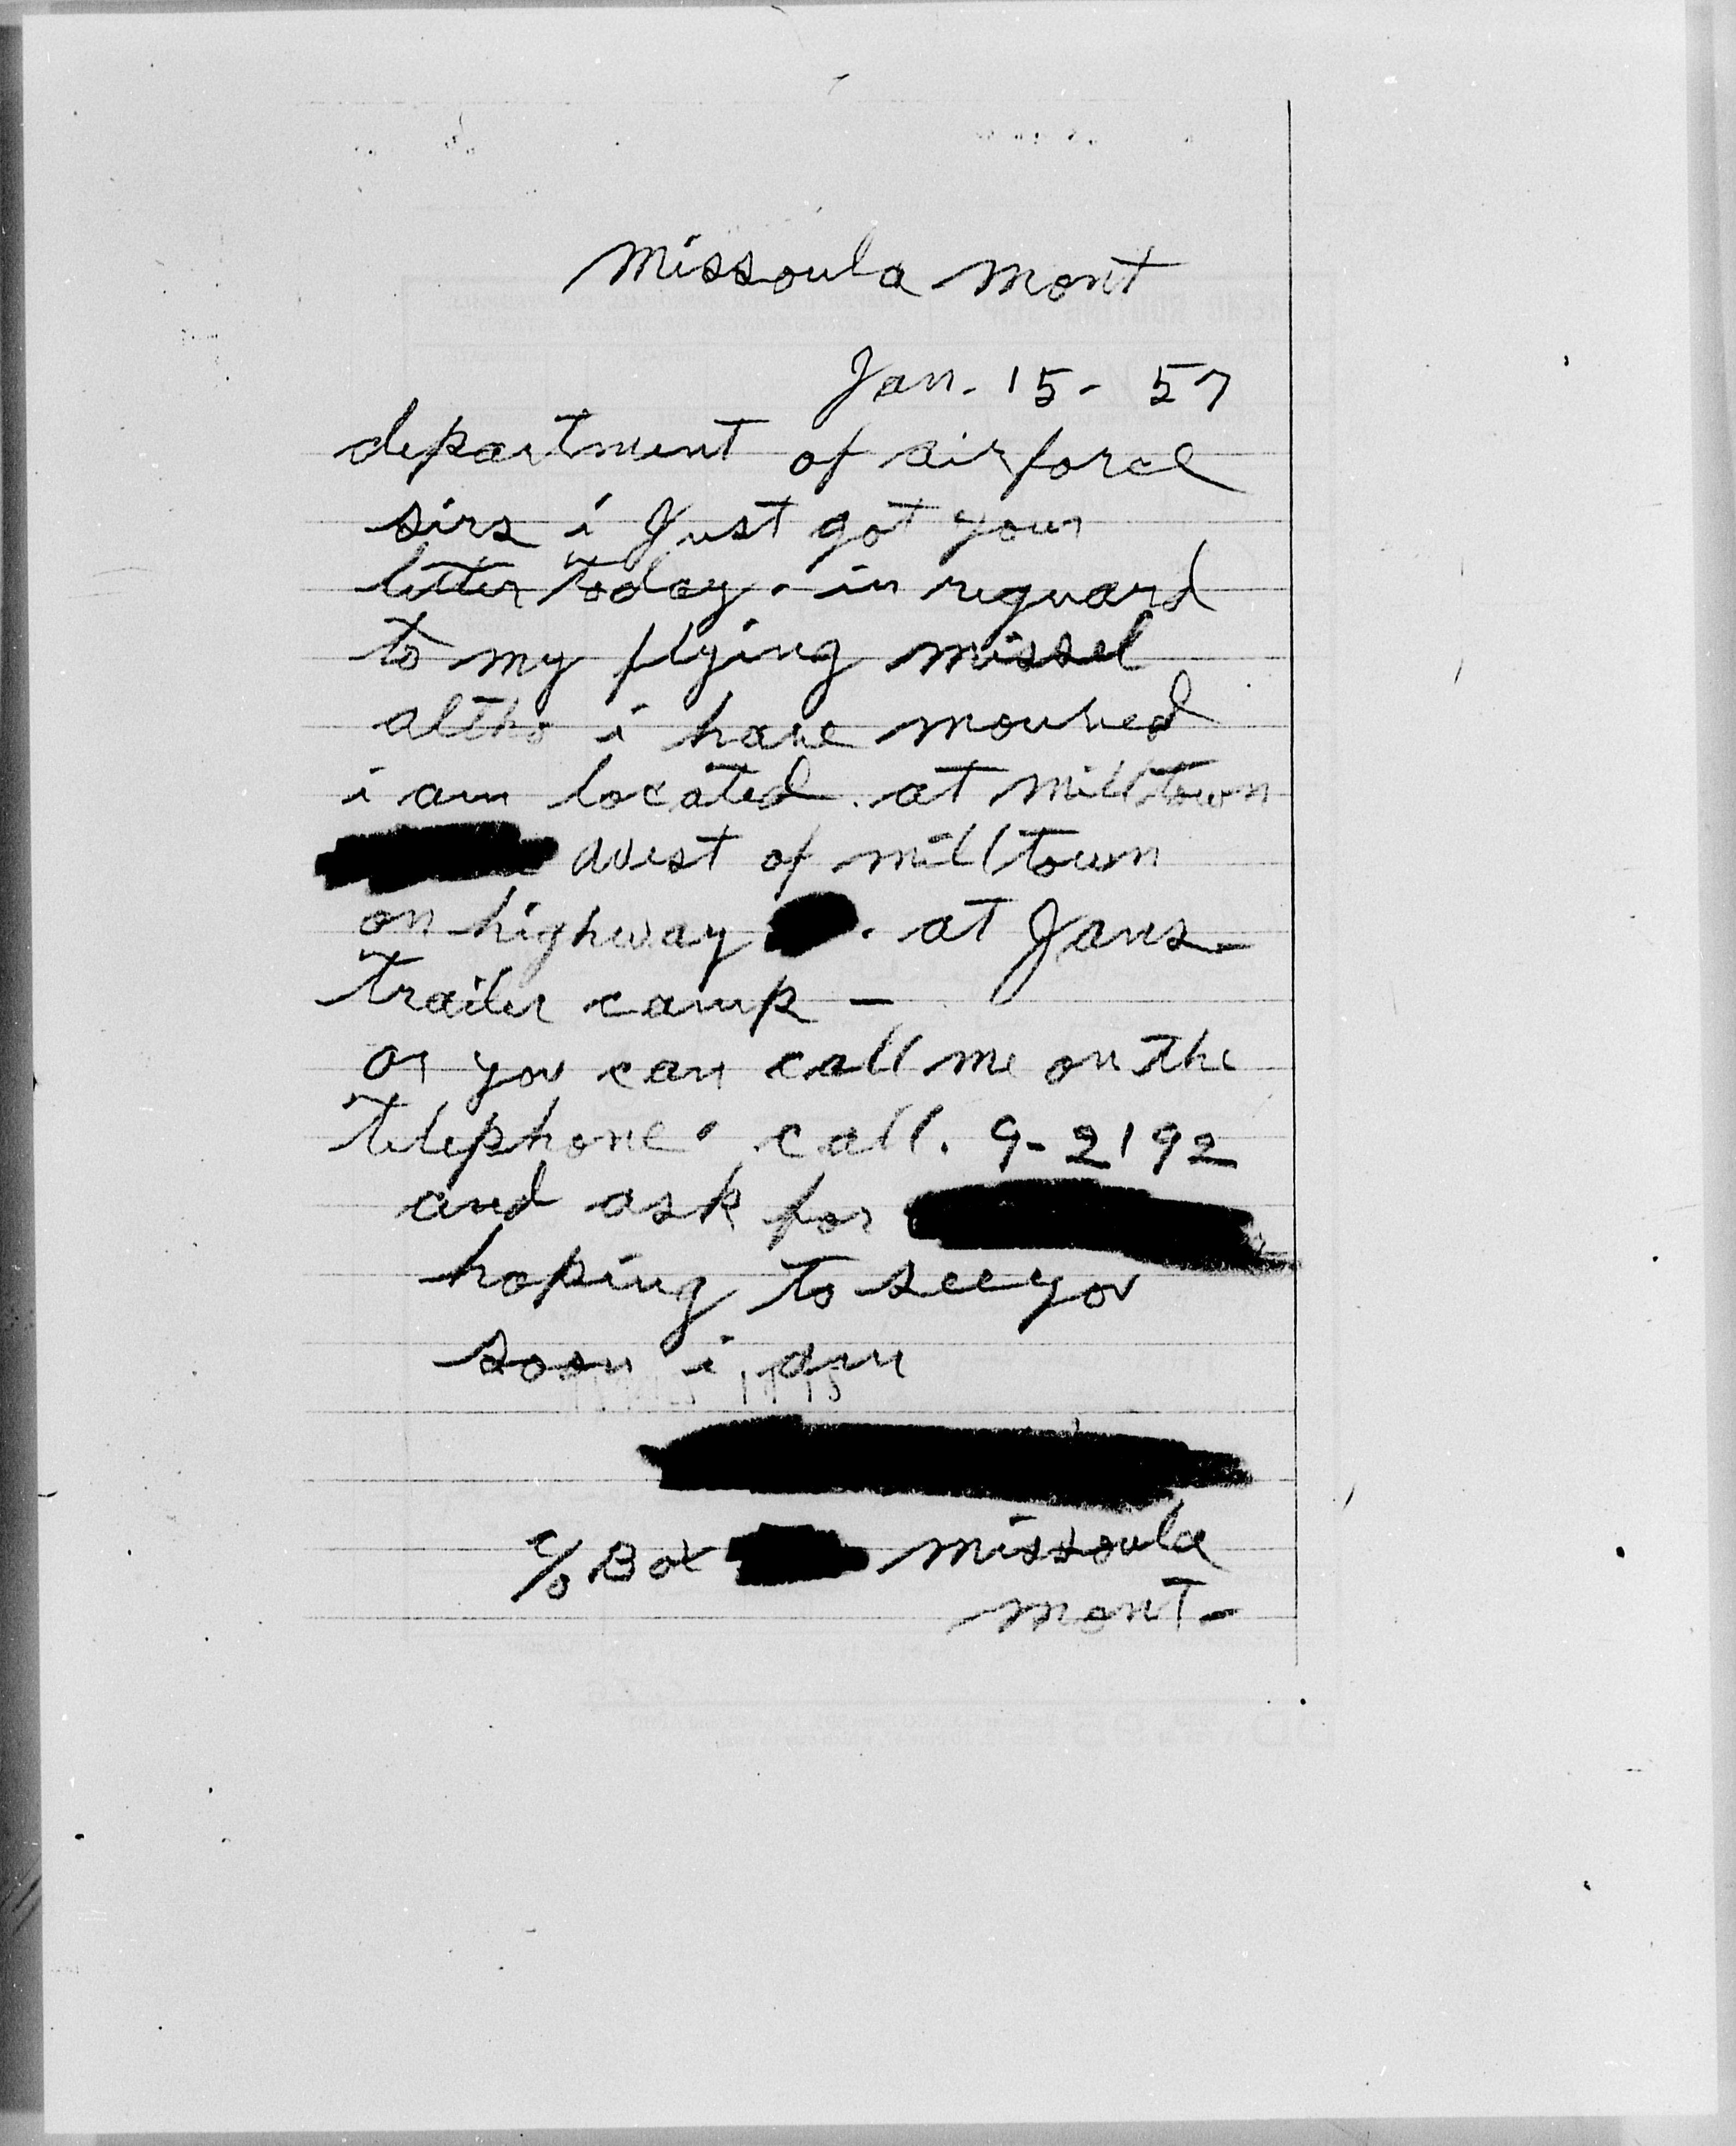 missoula mont
Jan. 15 - 57
department of airforce
sirs i Just got your
letter today. in reguard
to my flying missel
altho i have mouved
i am located. at milltown
west of milltown
on highway . at Jans
trailer camp -
or you can call me on the
telephone. call. 9-2192
and ask for
hoping to see you
soon i am
c/o Box missoula
mont-